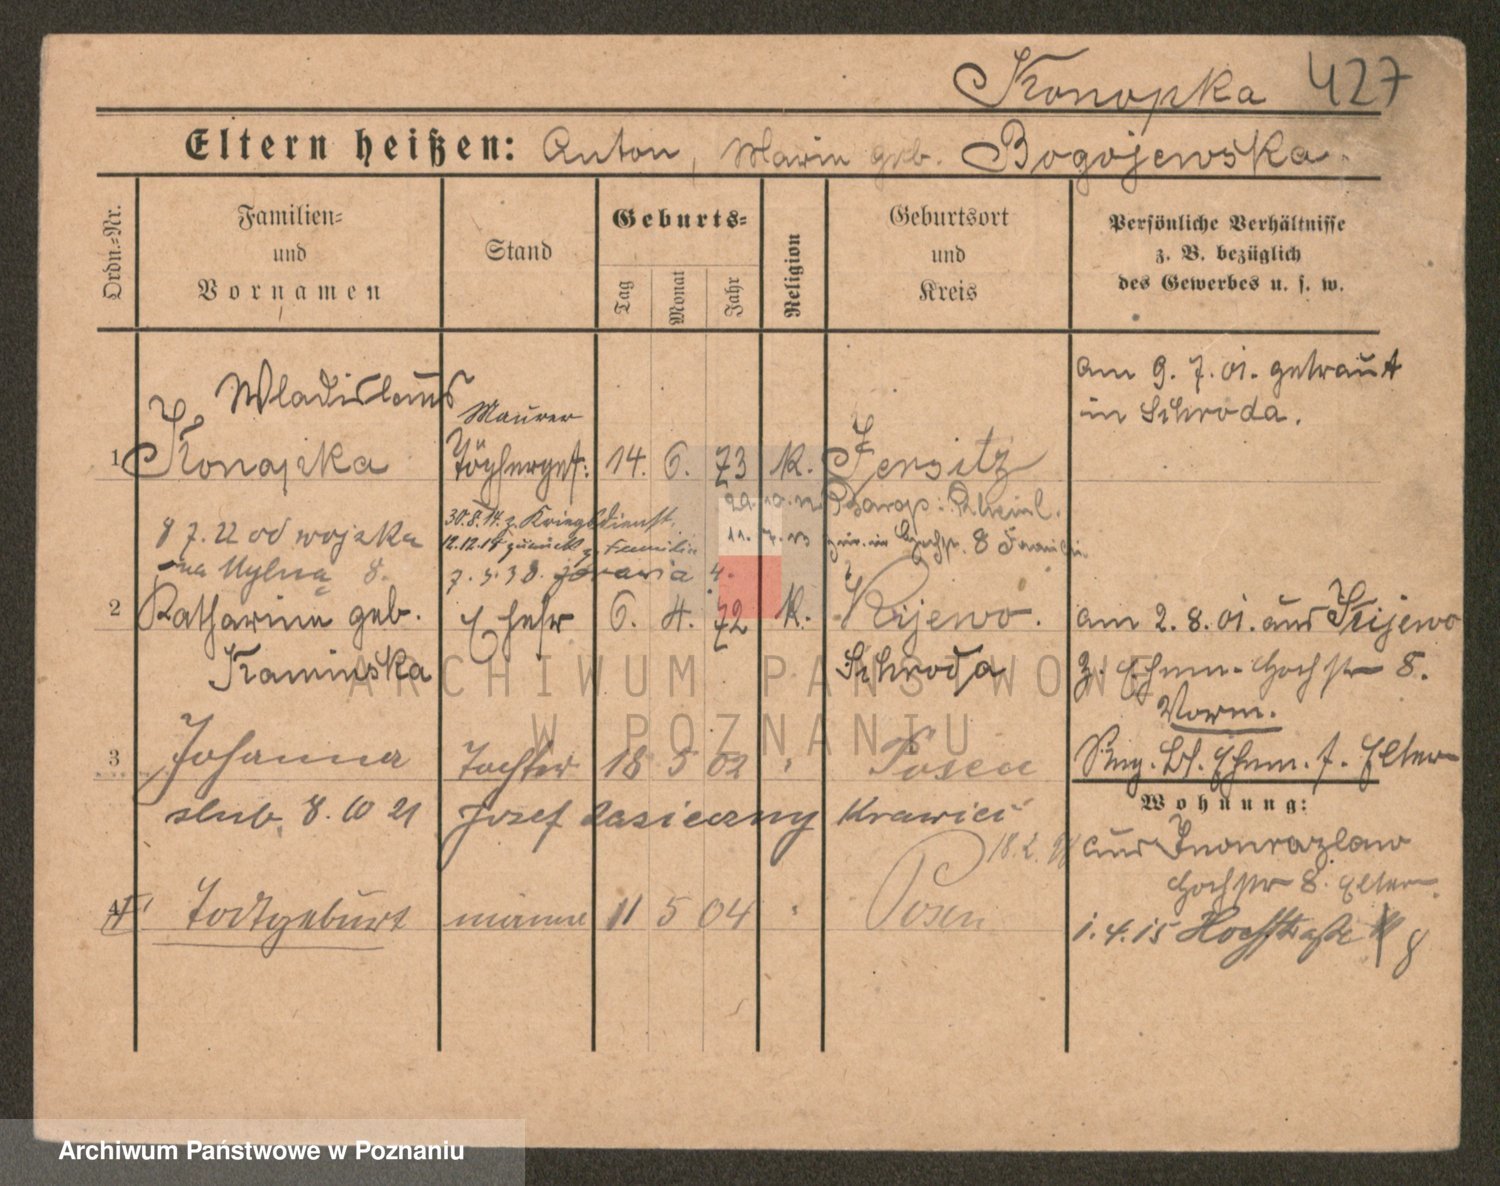 Konopka 427
Eltern heißen: Anton, Maria geb. Bogojewska.
Ordn.-Nr.
Familien-
und
Vornamen
Stand
Geburts-
Tag
Monat
Jahr
Religion
Geburtsort
und
Kreis
Persönliche Verhältnisse
z. B. bezüglich
des Gewerbes u. s. w.
am 9. 7. 01. getraut
in Schroda.
Wladislaus
Maurer
1 Konopka Töpferges: 14. 6. 73 K. Jersitz
30.8.14. z. Kriegsdienst.
8 7. 22 od wojska
12.12.18 zurück z. Familie 11. 7. 8 Familie
na Wylną 8.
7. 5. 38. 4.
2 Katharina geb. Ehefr 6. 4. 72 K. Kijewo. am 2. 8. 01. aus Kijewo
Kaminska Schroda z. Ehem. Hochstr 8.
Vorm.
3 Johanna Tochter 18 5 02 " Posen Ehem. f. Eltern
Wohnung:
slub. 8. 10 21 Josef Zasieczny Krawiec
18. 2. aus Inowrazlaw
Hochstr 8. Eltern
4 Todtgeburt männl 11 5 04 " Posen
1. 4. 15 Hochstraße 8
ARCHIWUM PAŃSTWOWE
W POZNANIU
Archiwum Państwowe w Poznaniu